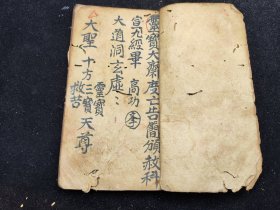 靈寶大齋度亡告簡頒赦科
宣九經畢 高功
大道洞玄虛
大聖 十方三寶 靈寶 救苦 天尊